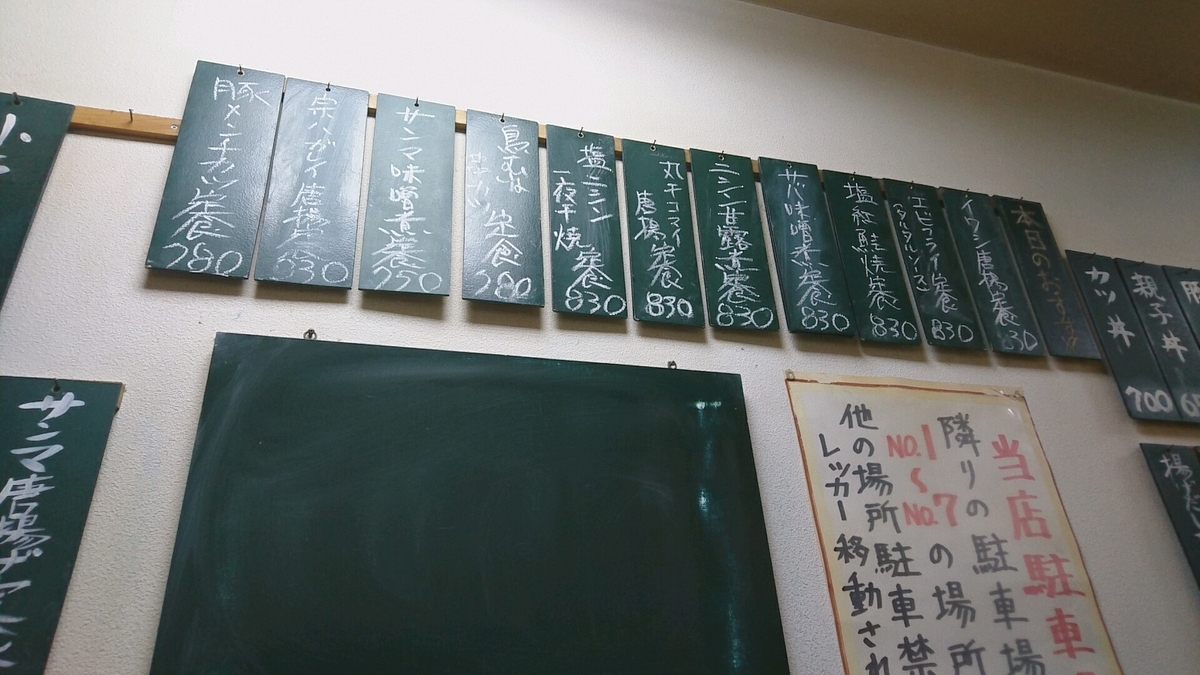 豚メンチカツ定食
780
宗八ガレイ唐揚定食
830
サンマ味噌煮定食
750
鳥むね
定食
780
塩ニシン
一夜干焼定食
830
丸干コマイ
唐揚定食
830
ニシン甘露煮定食
830
サバ味噌煮定食
830
塩紅鮭焼定食
830
エビフライ定食
(タルタルソース)
830
イワシ唐揚定食
830
本日のおすすめ
カツ丼
700
親子丼
サンマ唐揚
当店駐車
隣りの駐車場
NO.1〜NO.7の場所
他の場所駐車禁
レッカー移動され